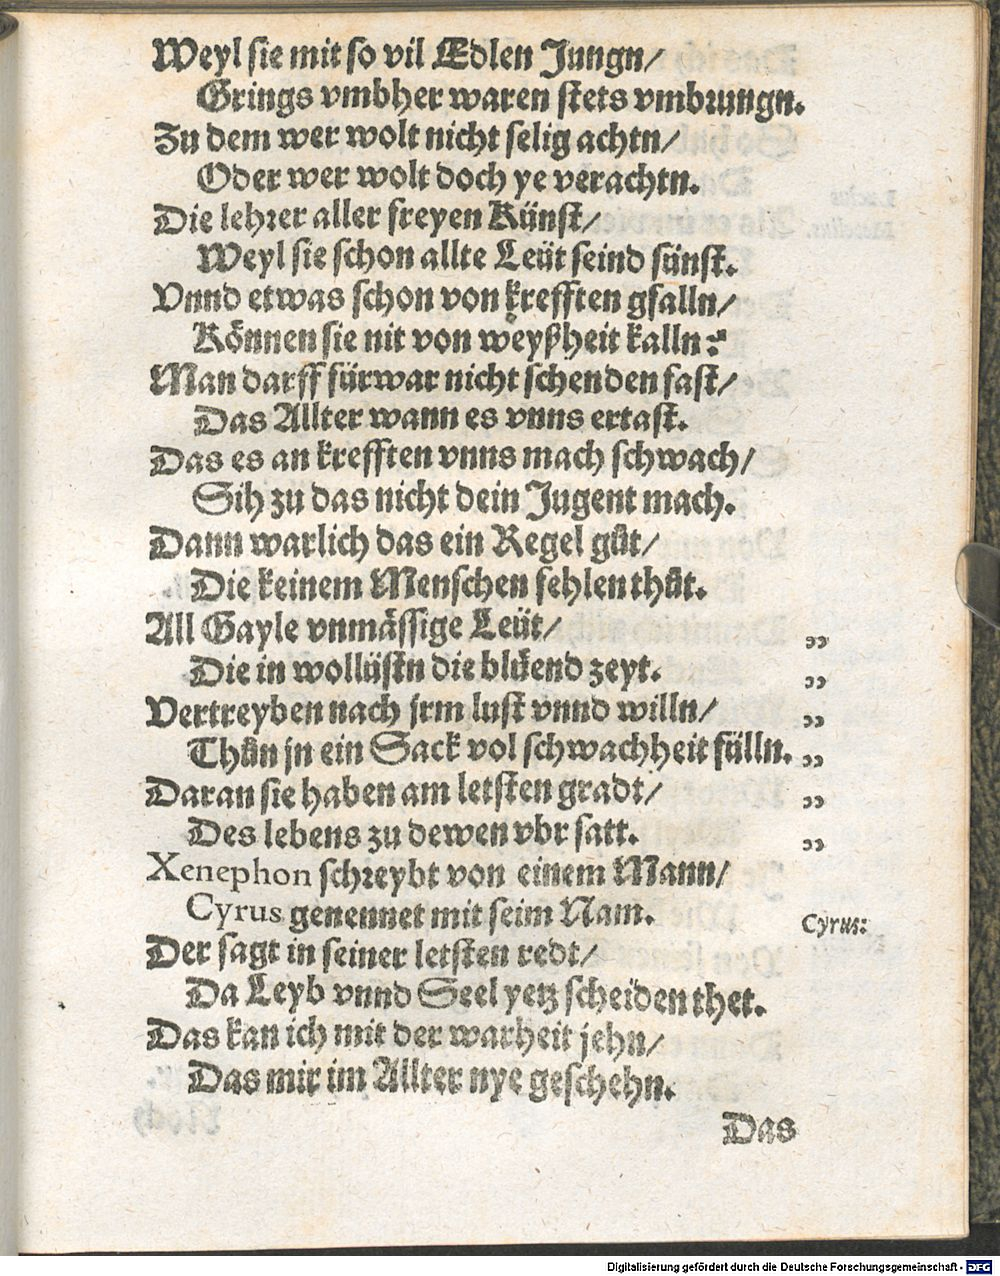 Weyl sie mit so vil Edlen Jungn/
Grings vmbher waren stets vmbrungn.
Zu dem wer wolt nicht selig achtn/
Oder wer wolt doch ye verachtn.
Die lehrer aller freyen Künst/
Weyl sie schon allte Leüt seind sünst.
Vnnd etwas schon von krefften gfalln/
Können sie nit von weyßheit kalln:
Man darff fürwar nicht schenden fast/
Das Allter wann es vnns ertast.
Das es an krefften vnns mach schwach/
Sih zu das nicht dein Jugent mach.
Dann warlich das ein Regel gůt/
Die keinem Menschen fehlen thůt.
All Gayle vnmässige Leüt/ „
Die in wollüstn die blüend zeyt. „
Vertreyben nach jrm lust vnnd willn/ „
Thůn jn ein Sack vol schwachheit fülln. „
Daran sie haben am letsten gradt/ „
Des lebens zu dewen vbr satt. „
Xenephon schreybt von einem Mann/
Cyrus genennet mit seim Nam. Cyrus:
Der sagt in seiner letsten redt/
Da Leyb vnnd Seel yetz scheiden thet.
Das kan ich mit der warheit jehn/
Das mir im Allter nye geschehn.
Das
Digitalisierung gefördert durch die Deutsche Forschungsgemeinschaft - DFG